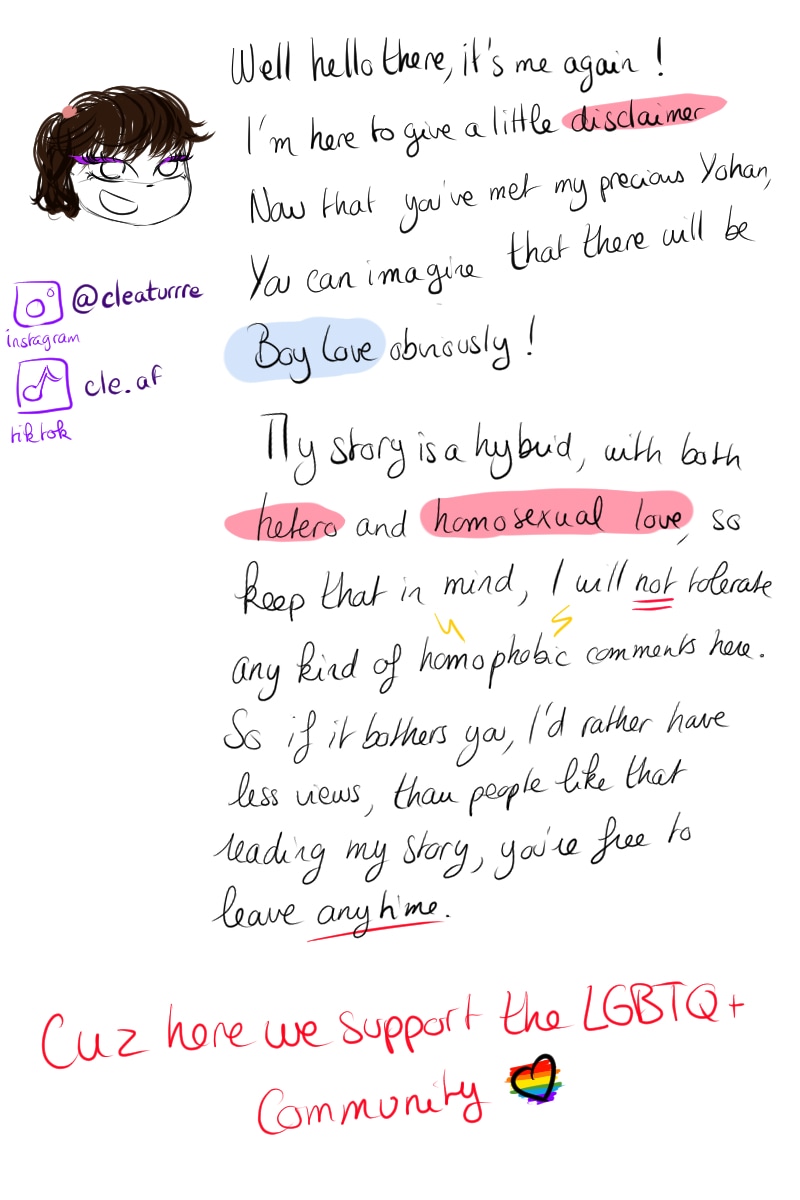 Well hello there, it's me again !
I'm here to give a little disclaimer
Now that you've met my precious Yohan,
You can imagine that there will be
Boy Love obviously !
@cleaturrre
instagram
cle.af
tiktok
My story is a hybrid, with both
hetero and homosexual love, so
keep that in mind, I will not tolerate
any kind of homophobic comments here.
So if it bothers you, I'd rather have
less views, than people like that
reading my story, you're free to
leave anytime.
Cuz here we support the LGBTQ+
Community